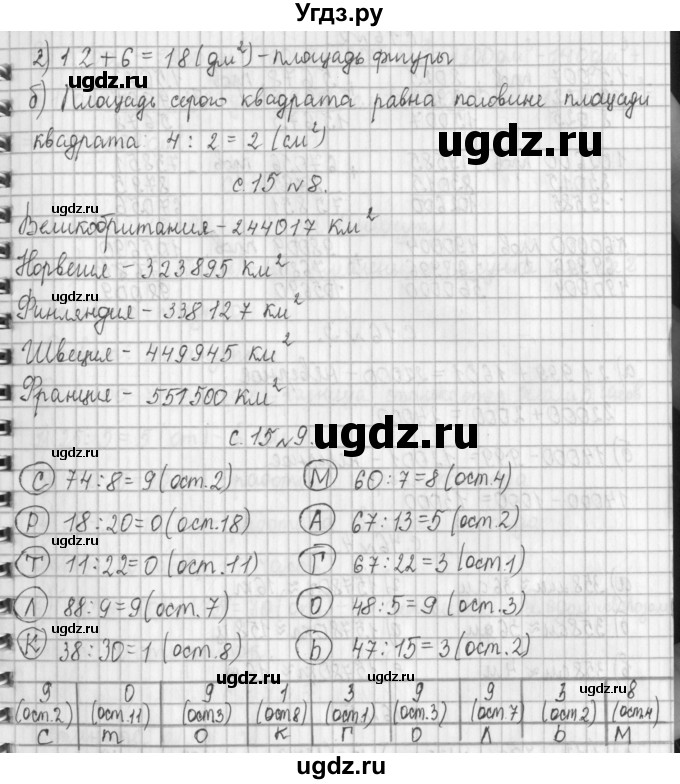 Угдз.ру
2) 12+6=18(дм²)-площадь фигуры
ugdz.ru
б) Площадь серого квадрата равна половине площади
ugdz.ru
квадрата 4:2=2(см²)
с.15 №8.
ugdz.ru
Великобритания-244017 км²
Норвегия-323895 км²
ugdz.ru
Финляндия-338127 км²
Швеция-449945 км²
Франция-551500 км²
ugdz.ru
с.15 №9.
ugdz.ru
С 74:8=9(ост.2) М 60:7=8(ост.4)
ugdz.ru
Р 18:20=0(ост.18) А 67:13=5(ост.2)
ugdz.ru
Т 11:22=0(ост.11) Г 67:22=3(ост.1)
Л 88:9=9(ост.7) О 48:5=9(ост.3)
ugdz.ru
К 38:30=1(ост.8) Ь 47:15=3(ост.2)
ugdz.ru ugdz.ru
9 0 9 1 3 9 9 3 8
(ост.2) (ост.11) (ост3) (ост8) (ост1) (ост.3) (ост.7) (ост2) (ост4)
С т О К Г О Л Ь М
ugdz.ru